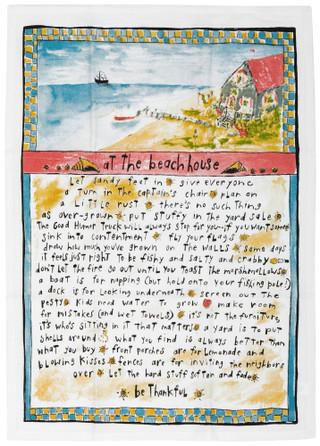 at the beach house
Let sandy feet in give everyone
a turn in the captain's chair plan on
a little rust there's no such thing
as over-grown put stuffy in the yard sale
The Good Humor Truck will always stop for you if you want some
sink into contentment fly your flags
draw how much you've grown on the walls some days
it feels just right to be fishy and salty and crabby
don't let the fire go out until you toast the marshmallows
a boat is for napping (but hold onto your fishing pole!)
a dock is for looking underneath screen out the
pesty kids need water to grow make room
for mistakes (and wet towels) it's not the furniture,
it's who's sitting in it that matters a yard is to put
shells around what you find is always better than
what you buy front porches are for lemonade and
blowing kisses fences are for inviting the neighbors
over let the hard stuff soften and fade
be thankful